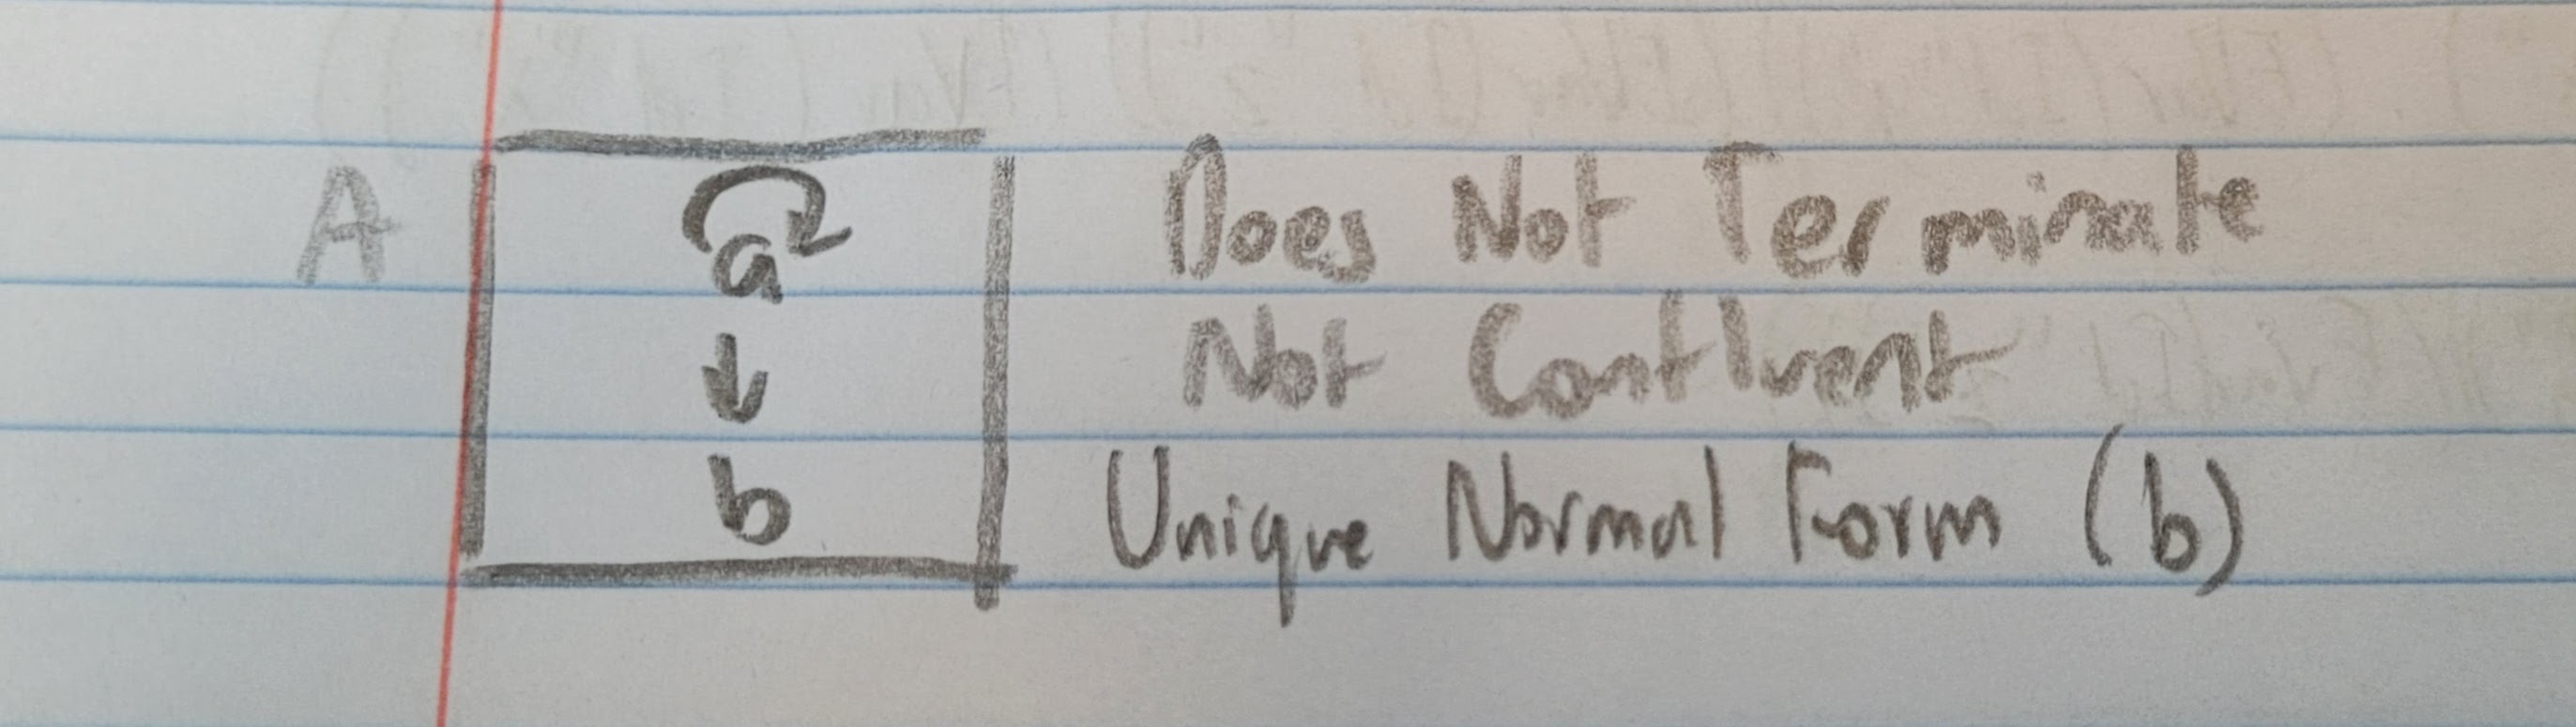 A a Does Not Terminate
↓ Not Confluent
b Unique Normal Form (b)